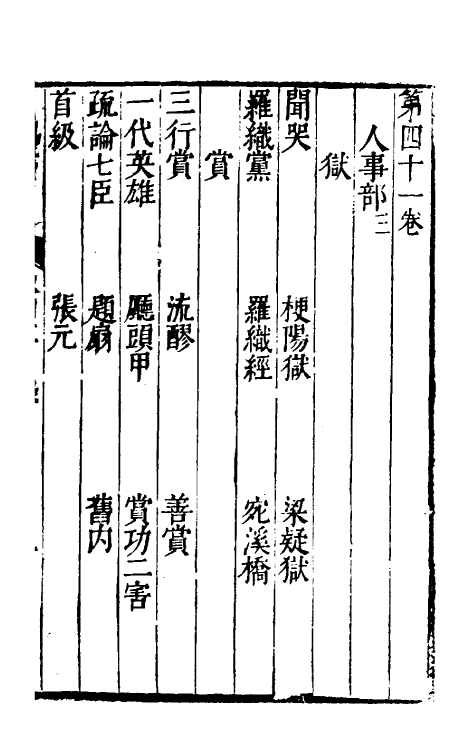 第四十一卷
人事部三
獄
聞哭 梗陽獄 梁疑獄
羅織黨 羅織經 宛溪橋
賞
三行賞 流醪 善賞
一代英雄 廳頭甲 賞功二害
疏論七臣 題扇 舊内
首級 張元